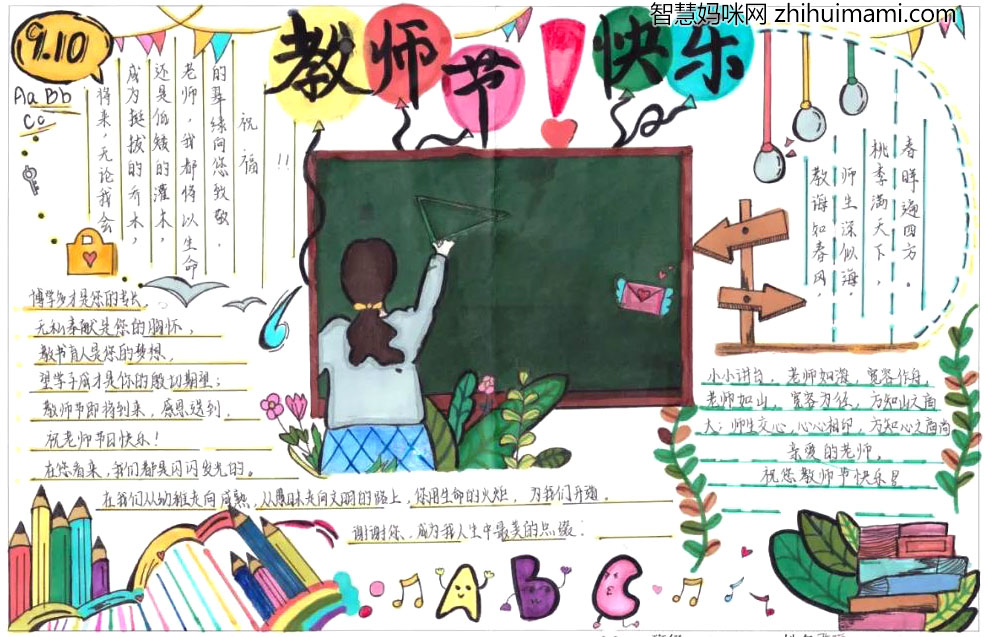 智慧妈咪网 zhihuimami.com
9.10
教师节！快乐
Aa Bb
Cc
祝福!!
的翠绿向您致敬．
老师，我都将以生命
还是低矮的灌木，
成为挺拔的乔木，
将来，无论我会
春晖遍四方。
桃李满天下，
师生深似海．
教诲如春风，
博学多才是您的专长，
无私奉献是您的胸怀，
教书育人是您的梦想，
望学子成才是你的殷切期望；
教师节即将到来，感恩送到．
祝老师节日快乐！
在您看来，我们都是闪闪发光的。
在我们从幼稚走向成熟，从愚昧走向文明的路上，您用生命的火炬，为我们开道．
谢谢您，成为我人生中最美的点缀：
小小讲台，老师如海，宽容作舟，
老师如山，宽容为径，方知山之高
大；师生交心，心心相印，方知心之高尚
亲爱的老师，
祝您教师节快乐！
A B C